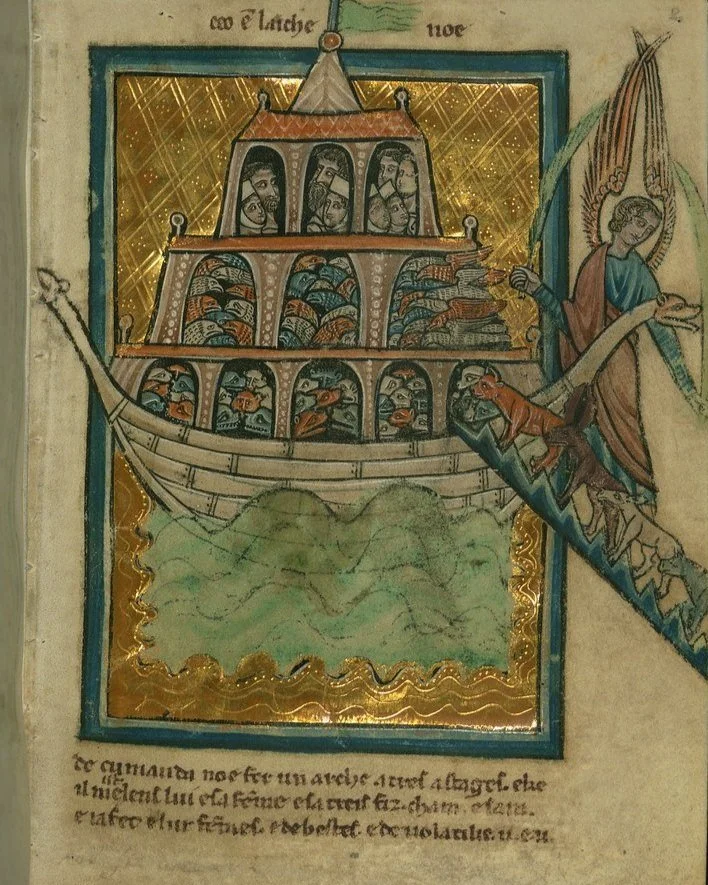 ceo ē larche noe
de cumandu noe fere un arche a treis astages. e ke
il meient lui e sa feme e sa treis fiz. cham. e sam.
e iafet e lur femes. e de bestes. e de uolatilie. u. e. u.